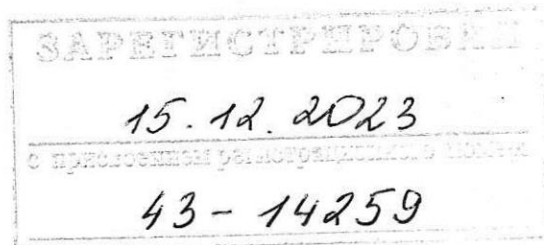 ЗАРЕГИСТРИРОВАН
15.12.2023
с присвоением регистрационного номера
43-14259